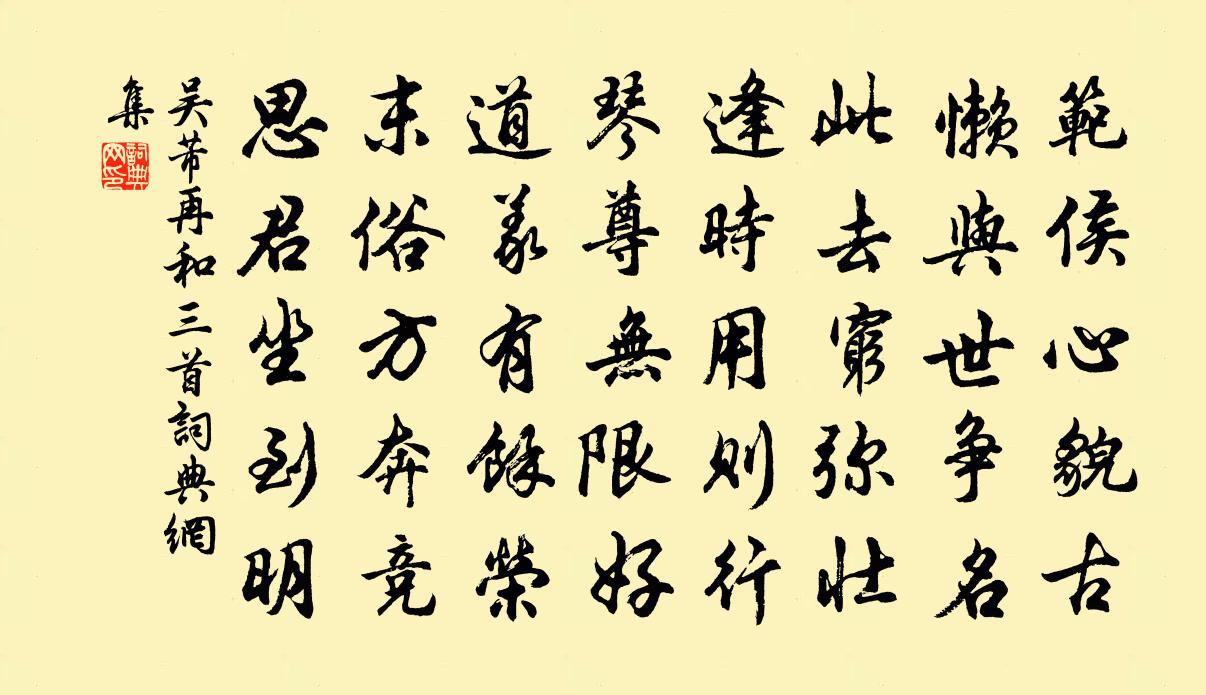 範侯心貌古
懶與世争名
此去窮弥壯
逢時用則行
琴尊無限好
道義有餘榮
末俗方奔竞
思君坐到明
吴芾再和三首詞典網
集
詞典網印